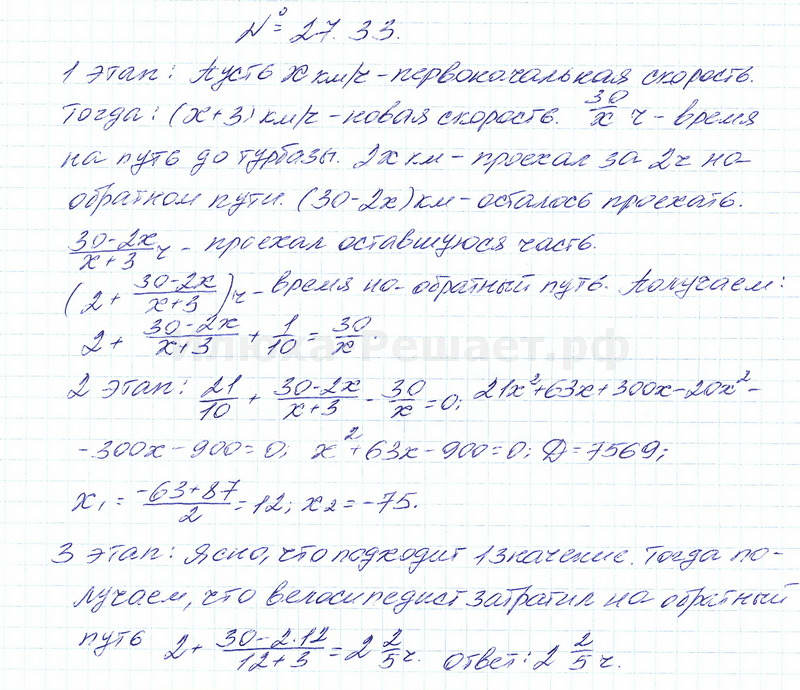 № 27.33.
1 этап: Пусть x км/ч - первоначальная скорость.
Тогда: (x+3) км/ч - новая скорость. 30/x ч - время
на путь до турбазы. 2x км - проехал за 2ч на
обратном пути. (30-2x) км - осталось проехать.
(30-2x)/(x+3) ч - проехал оставшуюся часть.
(2 + (30-2x)/(x+3)) ч - время на обратный путь. Получаем:
2 + (30-2x)/(x+3) + 1/10 = 30/x.
Решает.рф
2 этап: 21/10 + (30-2x)/(x+3) - 30/x = 0; 21x²+63x+300x-20x²-
-300x-900=0; x²+63x-900=0; D=7569;
x₁ = (-63+87)/2 = 12; x₂ = -75.
3 этап: Ясно, что подходит 1 значение. Тогда по-
лучаем, что велосипедист затратил на обратный
путь 2 + (30-2·12)/(12+3) = 2 2/5 ч. Ответ: 2 2/5 ч.